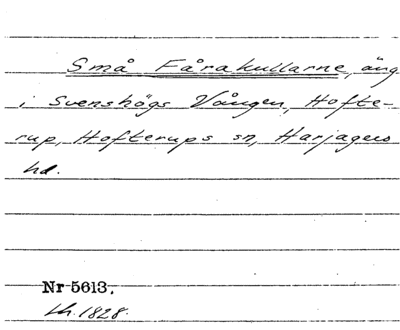 Små Fårakullarne, äng
i Svenshögs Vången, Hofte-
rup, Hofterups sn, Harjagers
hd.
Nr 5613.
lh. 1828.